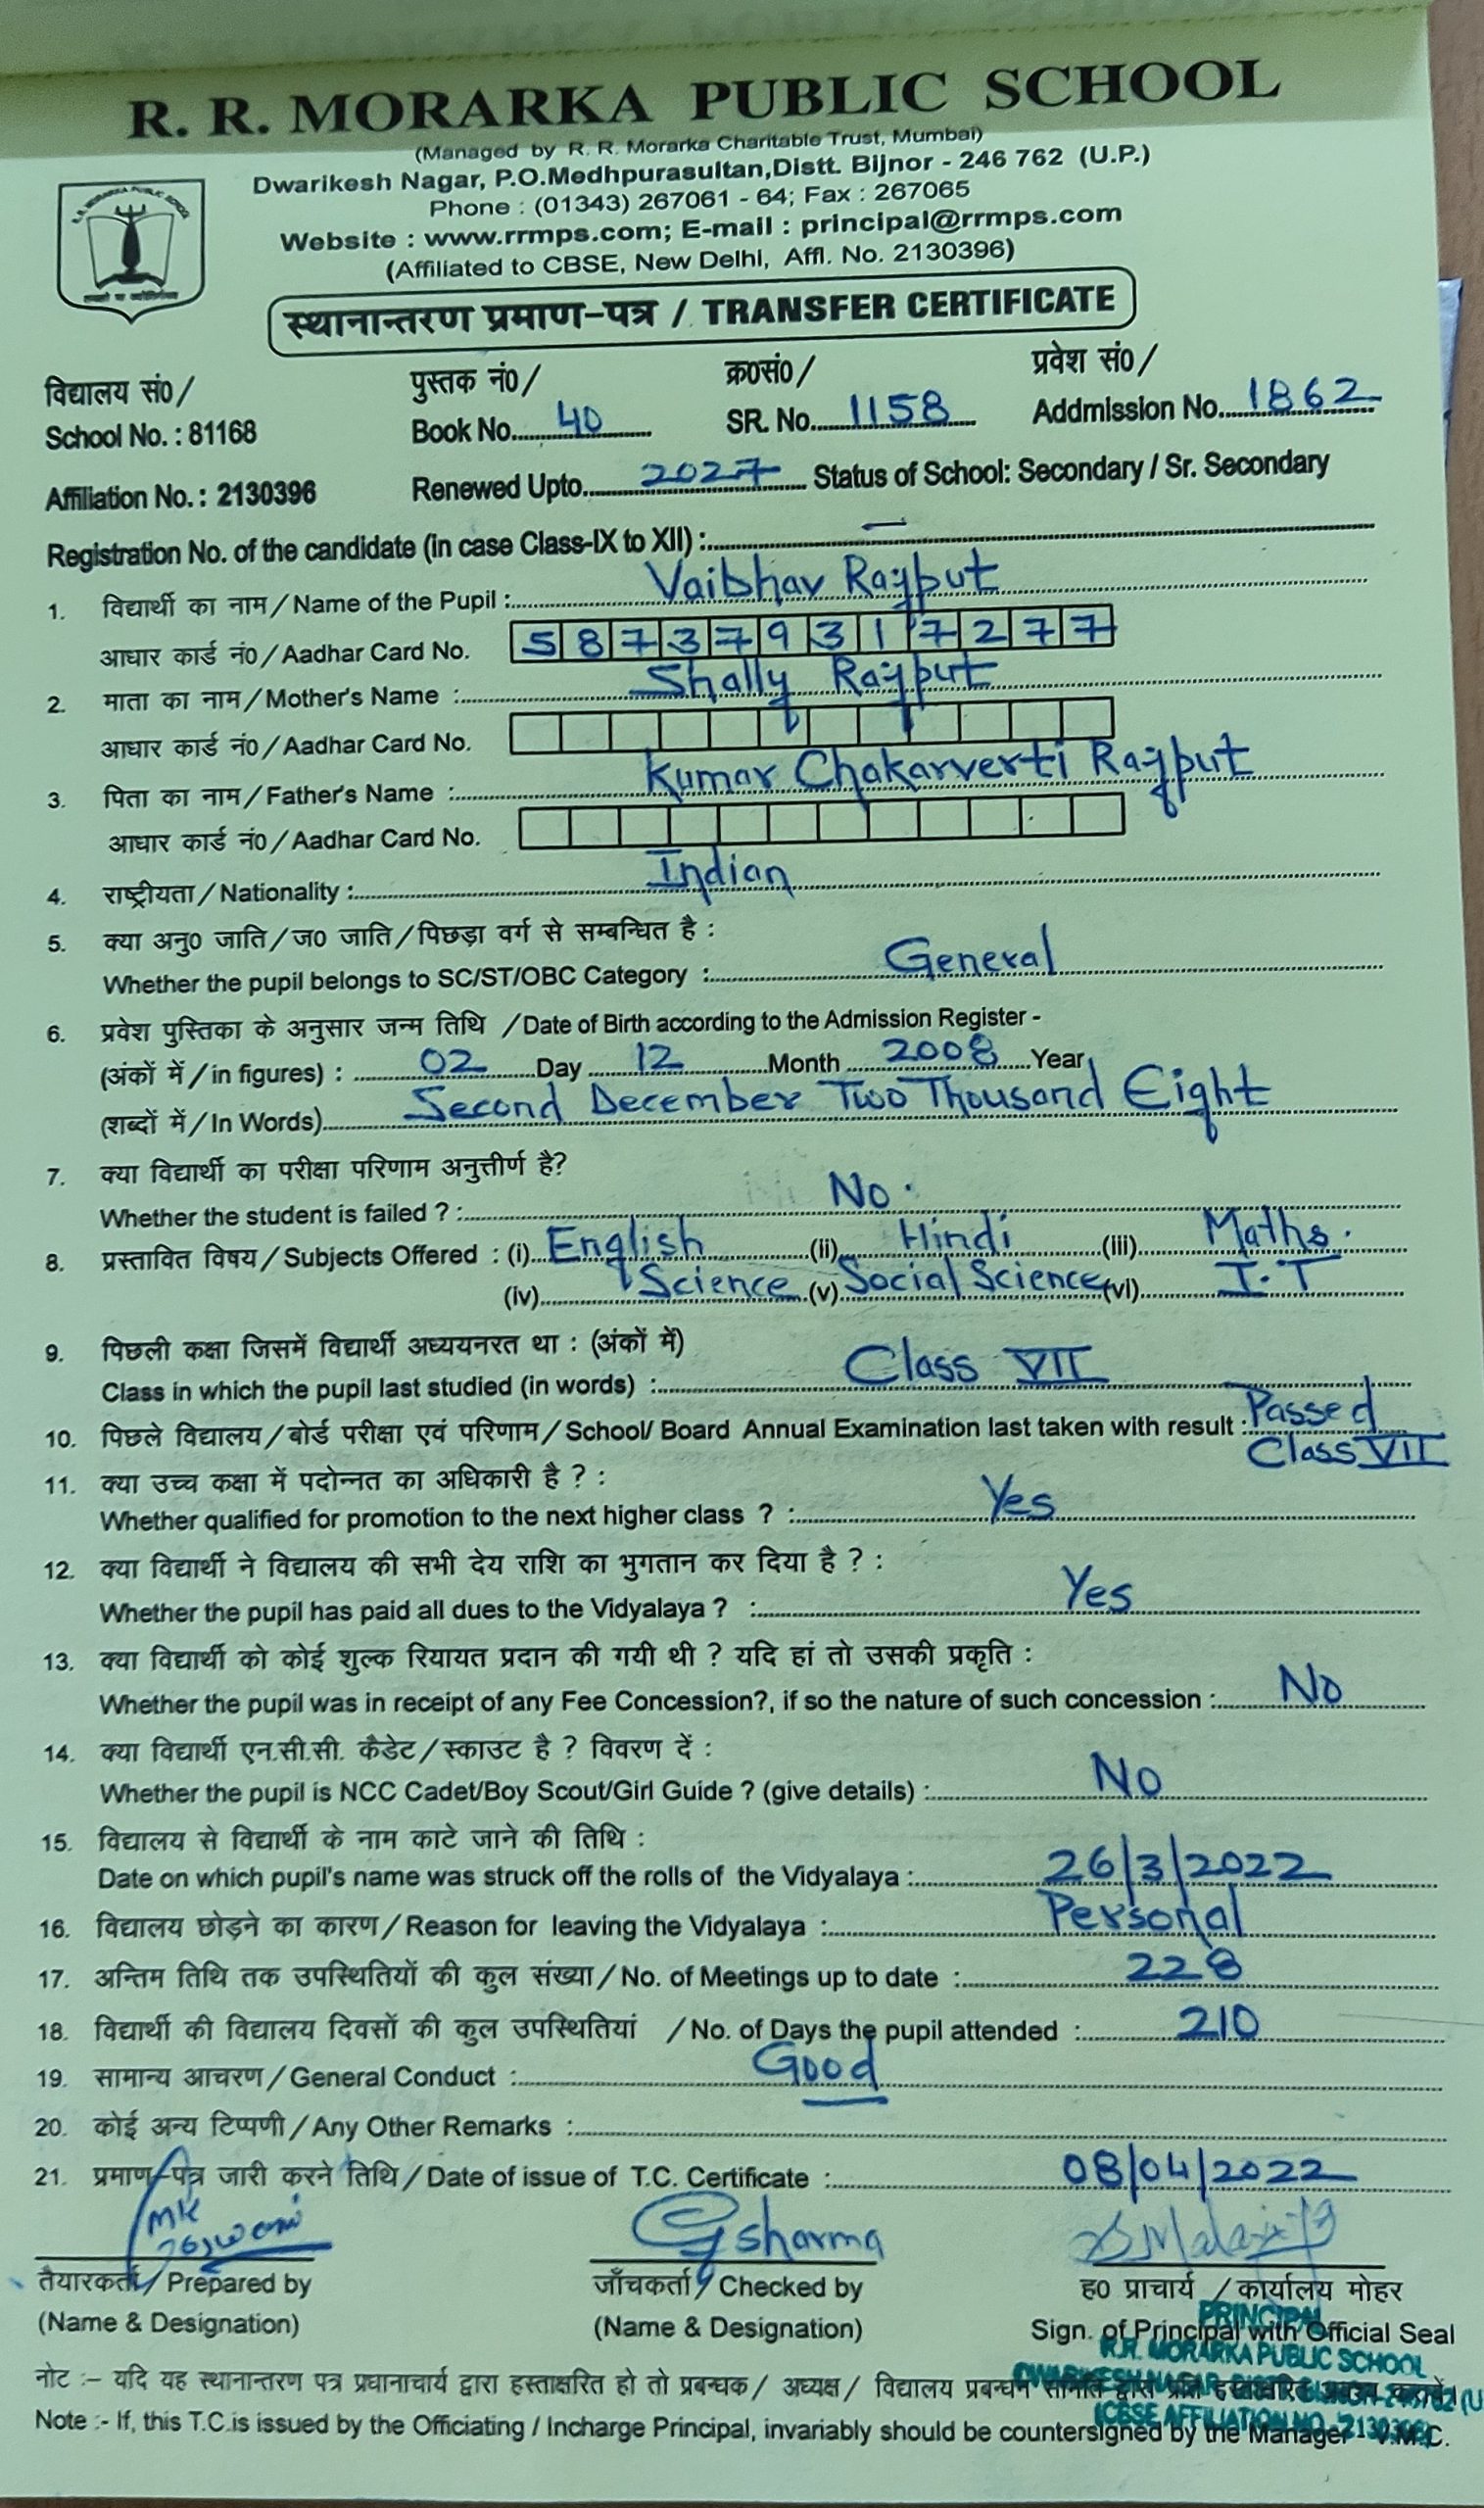 R. R. MORARKA PUBLIC SCHOOL
(Managed by R. R. Morarka Charitable Trust, Mumbai)
Dwarikesh Nagar, P.O.Medhpurasultan,Distt. Bijnor - 246 762 (U.P.)
Phone : (01343) 267061 - 64; Fax : 267065
Website : www.rrmps.com; E-mail : principal@rrmps.com
(Affiliated to CBSE, New Delhi, Affl. No. 2130396)
स्थानान्तरण प्रमाण-पत्र / TRANSFER CERTIFICATE
विद्यालय सं0/ पुस्तक नं0/ क्र0सं0/ प्रवेश सं0/
School No. : 81168 Book No. 40 SR. No. 1158 Addmission No. 1862
Affiliation No. : 2130396 Renewed Upto 2027 Status of School: Secondary / Sr. Secondary
Registration No. of the candidate (in case Class-IX to XII) : —
1. विद्यार्थी का नाम/Name of the Pupil : Vaibhav Rajput
आधार कार्ड नं0/Aadhar Card No. 587379317277
2. माता का नाम/Mother's Name : Shally Rajput
आधार कार्ड नं0/Aadhar Card No.
3. पिता का नाम/Father's Name : Kumar Chakarverti Rajput
आधार कार्ड नं0/Aadhar Card No.
4. राष्ट्रीयता/Nationality : Indian
5. क्या अनु0 जाति/ज0 जाति/पिछड़ा वर्ग से सम्बन्धित है :
Whether the pupil belongs to SC/ST/OBC Category : General
6. प्रवेश पुस्तिका के अनुसार जन्म तिथि /Date of Birth according to the Admission Register -
(अंकों में/in figures) : 02 Day 12 Month 2008 Year
(शब्दों में/In Words) Second December Two Thousand Eight
7. क्या विद्यार्थी का परीक्षा परिणाम अनुत्तीर्ण है?
Whether the student is failed ? : No.
8. प्रस्तावित विषय/Subjects Offered : (i) English (ii) Hindi (iii) Maths.
(iv) Science (v) Social Science (vi) I.T
9. पिछली कक्षा जिसमें विद्यार्थी अध्ययनरत था : (अंकों में)
Class in which the pupil last studied (in words) : Class VII
10. पिछले विद्यालय/बोर्ड परीक्षा एवं परिणाम/School/ Board Annual Examination last taken with result : Passed
Class VII
11. क्या उच्च कक्षा में पदोन्नत का अधिकारी है ? :
Whether qualified for promotion to the next higher class ? : Yes
12. क्या विद्यार्थी ने विद्यालय की सभी देय राशि का भुगतान कर दिया है ? :
Whether the pupil has paid all dues to the Vidyalaya ? : Yes
13. क्या विद्यार्थी को कोई शुल्क रियायत प्रदान की गयी थी ? यदि हां तो उसकी प्रकृति :
Whether the pupil was in receipt of any Fee Concession?, if so the nature of such concession : No
14. क्या विद्यार्थी एन.सी.सी. कैडेट/स्काउट है ? विवरण दें :
Whether the pupil is NCC Cadet/Boy Scout/Girl Guide ? (give details) : No
15. विद्यालय से विद्यार्थी के नाम काटे जाने की तिथि :
Date on which pupil's name was struck off the rolls of the Vidyalaya : 26/3/2022
16. विद्यालय छोड़ने का कारण/Reason for leaving the Vidyalaya : Personal
17. अन्तिम तिथि तक उपस्थितियों की कुल संख्या/No. of Meetings up to date : 228
18. विद्यार्थी की विद्यालय दिवसों की कुल उपस्थितियां /No. of Days the pupil attended : 210
19. सामान्य आचरण/General Conduct : Good
20. कोई अन्य टिप्पणी/Any Other Remarks :
21. प्रमाण-पत्र जारी करने तिथि/Date of issue of T.C. Certificate : 08/04/2022
MK Gsharma
तैयारकर्ता/Prepared by जाँचकर्ता/Checked by ह0 प्राचार्य /कार्यालय मोहर
PRINCIPAL
(Name & Designation) (Name & Designation) Sign. of Principal with Official Seal
R.R. MORARKA PUBLIC SCHOOL
नोट :– यदि यह स्थानान्तरण पत्र प्रधानाचार्य द्वारा हस्ताक्षरित हो तो प्रबन्धक/ अध्यक्ष/ विद्यालय प्रबन्धन समिति द्वारा प्रति हस्ताक्षरित
DWARIKESH NAGAR
(CBSE AFFILIATION NO. 2130396)
Note :- If, this T.C.is issued by the Officiating / Incharge Principal, invariably should be countersigned by the Manager - V.M.C.